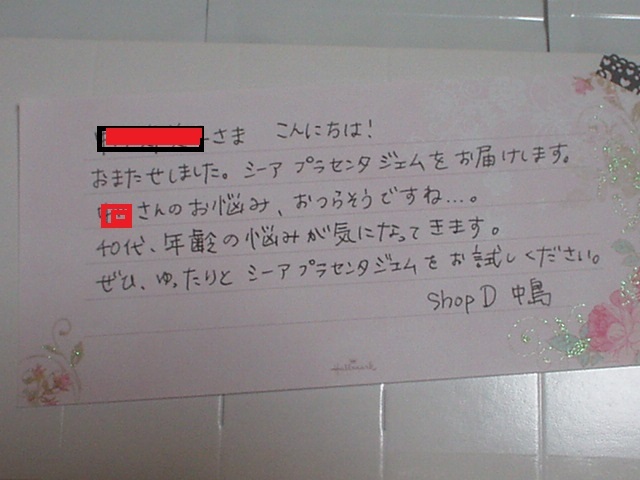 さま こんにちは!
おまたせしました。シーア プラセンタジェムをお届けします。
さんのお悩み、おつらそうですね…。
40代、年齢の悩みが気になってきます。
ぜひ、ゆったりと シーア プラセンタジェムをお試しください。
Shop D 中島
Hallmark